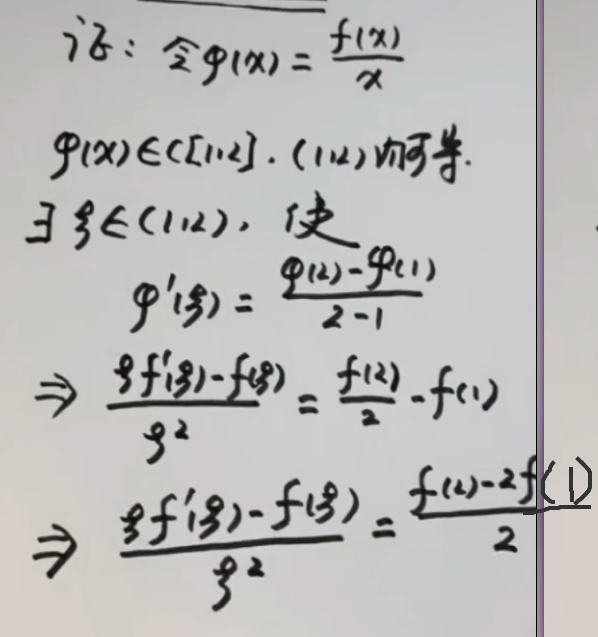 证: 令φ(x) = f(x)/x
φ(x)∈C[1,2]. (1,2)内可导.
∃ξ∈(1,2), 使
φ'(ξ) = (φ(2)-φ(1))/(2-1)
⇒ (ξf'(ξ)-f(ξ))/ξ² = f(2)/2 - f(1)
⇒ (ξf'(ξ)-f(ξ))/ξ² = (f(2)-2f(1))/2